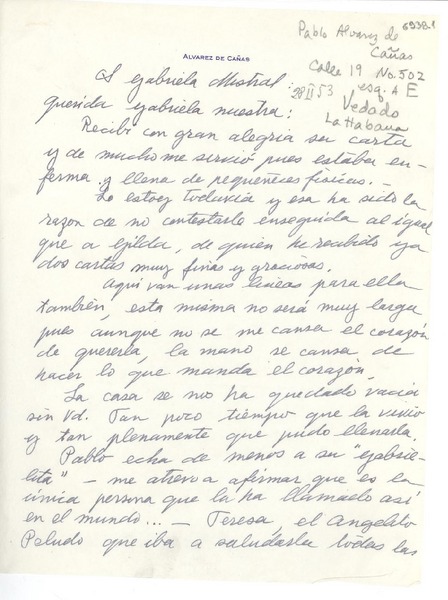 6938-1
Pablo Alvarez de
Cañas
Calle 19 No. 502
esq. A E
Vedado
La Habana
28 II 53
ALVAREZ DE CAÑAS
S Gabriela Mistral:
querida gabriela nuestra:
Recibí con gran alegria su carta
y de mucho me sirvió pues estaba en-
ferma y llena de pequeñeces físicas. -
Lo estoy todavía y esa ha sido la
razon de no contestarle enseguida al igual
que a Gilda, de quien he recibido ya
dos cartas muy finas y graciosas.
Aquí van unas lineas para ella
también, esta misma no será muy larga
pues aunque no se me cansa el corazón
de quererla, la mano se cansa de
hacer lo que manda el corazón.
La casa se nos ha quedado vacía
sin Vd. Tan poco tiempo que la vivió
y tan plenamente que pudo llenarla.
Pablo echa de menos a su "gabrie-
lita" - me atrevo a afirmar que es la
única persona que la ha llamado así
en el mundo... - Teresa, el Angelito
Peludo que iba a saludarla todas las